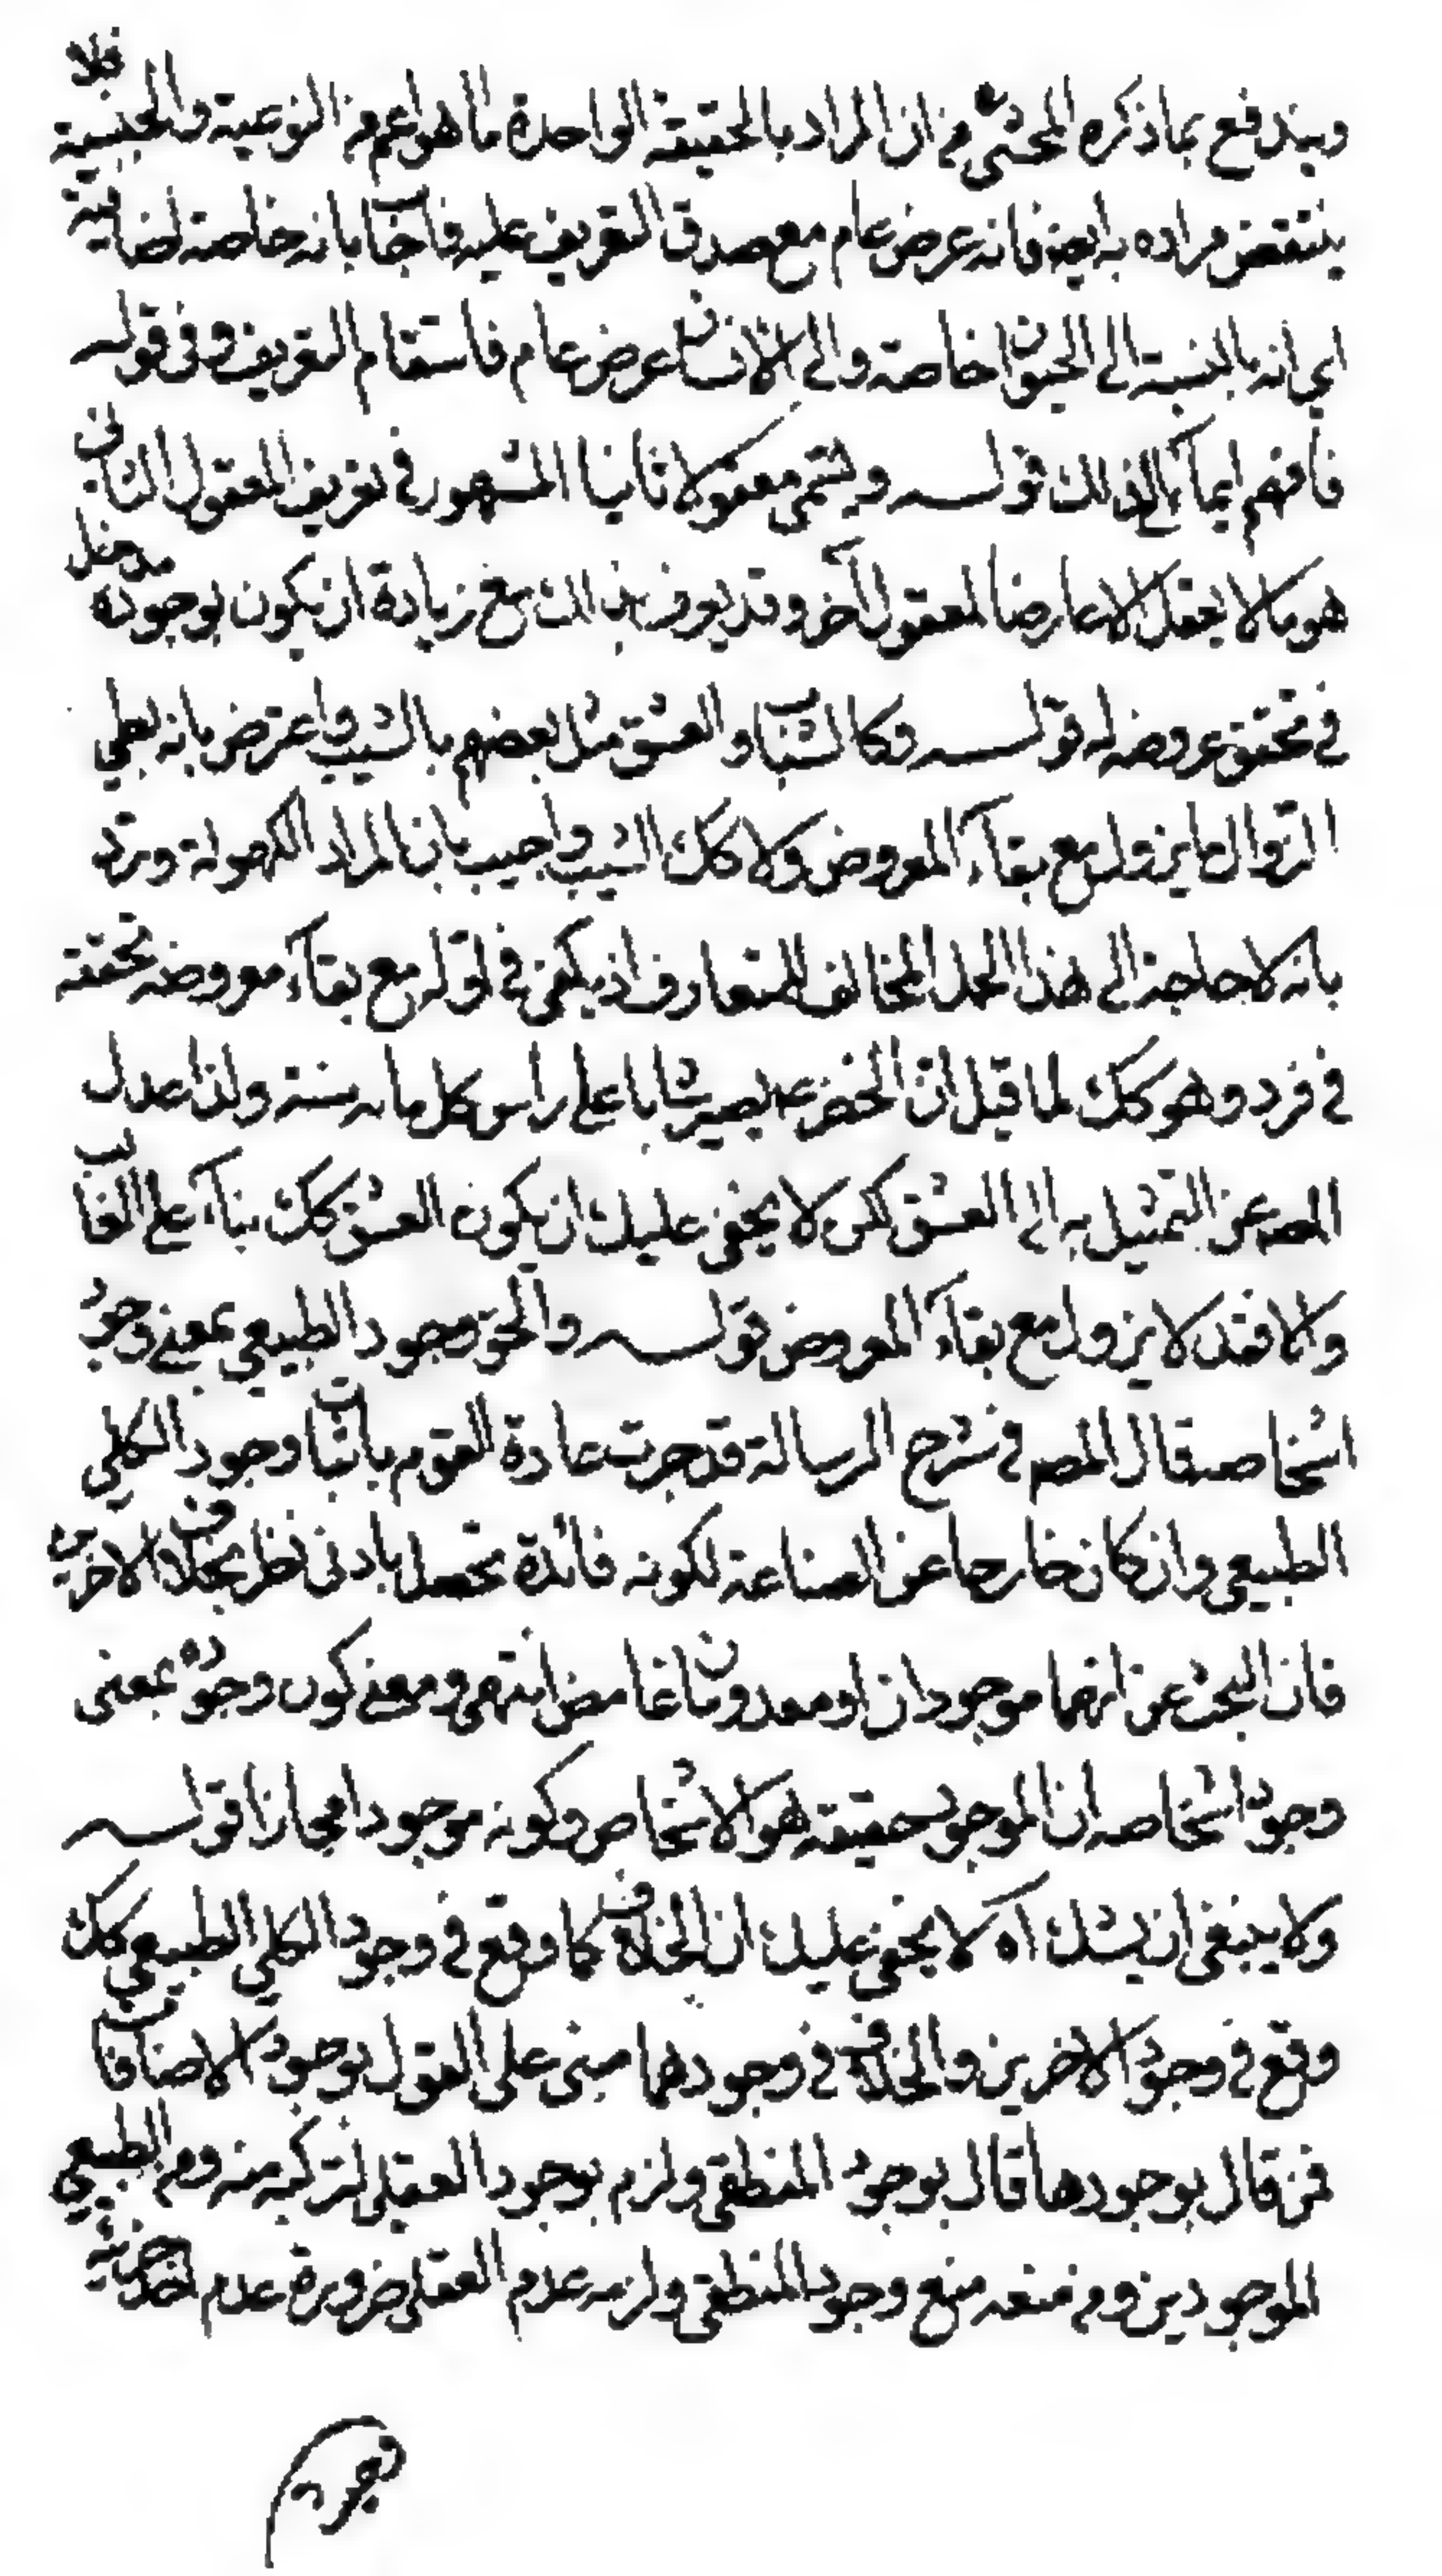 ويندفع بما ذكره المحشي من ان المراد بالحقيقة الواحدة ما هو اعم من النوعية والجنسية فلا
ينتقض مراده به ايضا فانه عرض عام مع صدق التعريف عليه فاجاب بانه خاصة اضافية
اي انه بالنسبة الى الحيوان خاصة والى الانسان عرض عام فاستقام التعريف وفي قوله
فافهم ايمآء الى ذلك قوله ويسمى معقولا ثانيا المشهور في تعريف المعقول الثاني
هو ما لا يعقل الا عارضا لمعقول آخر وقد يعرف بذلك مع زيادة ان يكون لوجوده مدخل
في تحقق عروضه له قوله وكالشباب والعشق مثل بعضهم بالشيب واعترض بانه بطي
الزوال ما يزول مع بقآء المعروض ولا كك الشيب واجيب بان المراد الكهولة ورد
بانه لا حاجة الى هذا الحمل المخالف للمتعارف اذ يكفي في قوله مع بقآء معروضه تحققه
في فرد وهو كك لما قيل ان الخضر عم يصير شابا على راس كل مائه سنة ولذا عدل
المصه عن التمثيل به الى العشق لكن لا يخفى عليك ان يكون العشق كك بنآء على الغالب
والا فقد لا يزول مع بقآء المعروض قوله والحق وجود الطبيعي بمعنى وجود
اشخاصه قال المصه في شرح الرسالة قد جرت عادة القوم باثبات وجود الكلي
الطبيعي وان كان خارجا عن الصناعة لكونه فائدة تحصل بادنى نظر بخلاف الاخرين
فان البحث عن انهما موجودان او معدومان غامض انتهى ومعنى كون وجوده بمعنى
وجود اشخاصه ان الموجود حقيقة هو الاشخاص وكونه موجودا مجازا قوله
ولا ينبغي ان يشك آه لا يخفى عليك ان الخلاف كما وقع في وجود الكلي الطبيعي كك
وقع في وجود الاخرين والخلاف في وجودهما مبني على القول بوجود الاضافات
فمن قال بوجودها قال بوجود المنطقي ولزم بوجود العقلي لتركبه منه ومن الطبيعي
الموجودين ومن منعه منع وجود المنطقي ولزمه عدم العقلي ضرورة عدم احد جزئيه